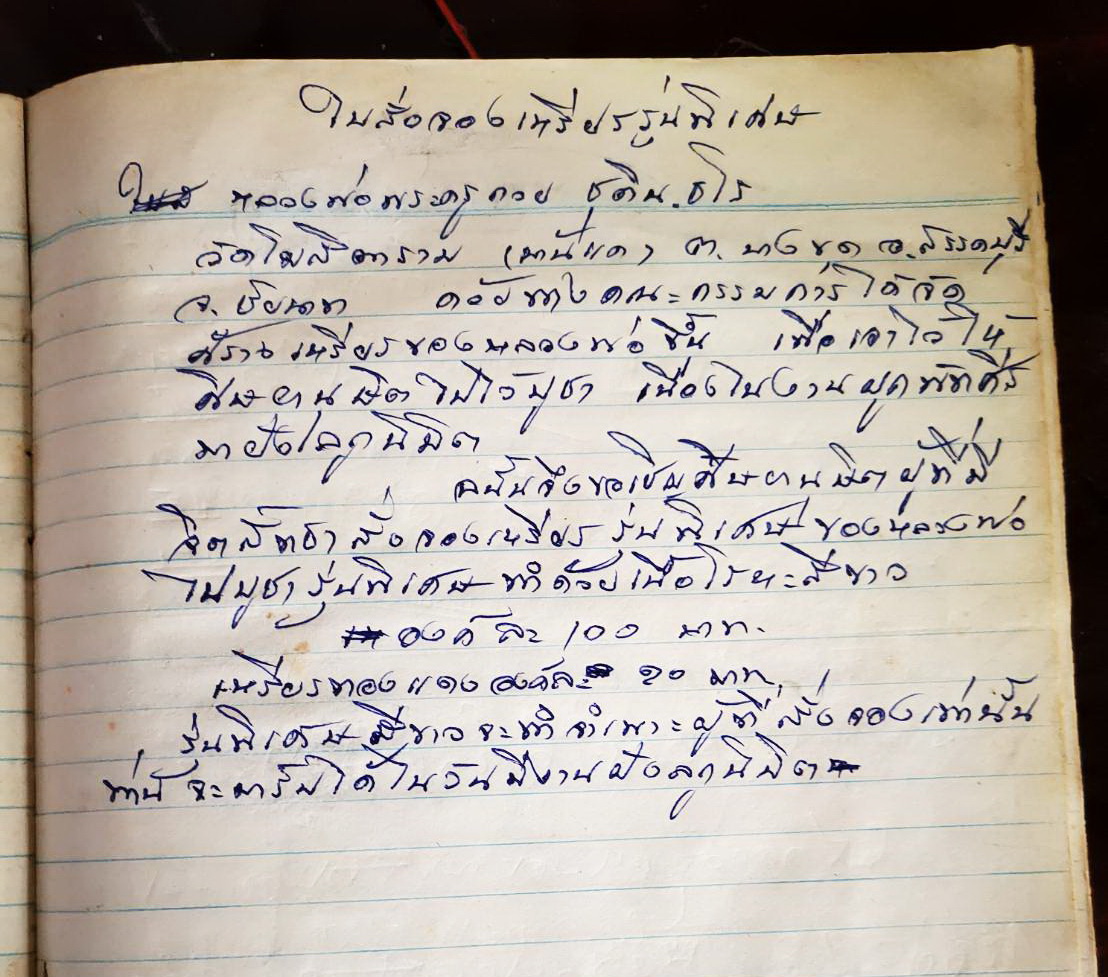 ใบสั่งจองเหรียรรุ่นพิเศษ
หลวงพ่อพระครูกวย ชุติน.ธโร
วัดโฆสิตาราม (บ้านแค) ต. บางขุด อ.สรรคบุรี
จ. ชัยนาท ด้วยทางคณะกรรมการได้จัด
สร้างเหรียรของหลวงพ่อขึ้น เพื่อเอาไว้ให้
ศิษยานุษิตไปไว้บูชา เนื่องในงานผูกพัทศรีร
มาฝังลูกนิมิต
ฉนั้นจึงขอเชิญศิษยานุษิตผู้ที่มี
จิตสัทธาสั่งจองเหรียรรุ่นพิเศษของหลวงพ่อ
ไปบูชารุ่นพิเศษทำด้วยเนื้อโรหะสีขาว
องค์ละ 100 บาท.
เหรียรทองแดงองค์ละ 20 บาท.
รุ่นพิเศษสีขาวจะทำจำเพาะผู้ที่สั่งจองเท่านั้น
ท่านจะมารับได้ในวันมีงานฝังลูกนิมิต